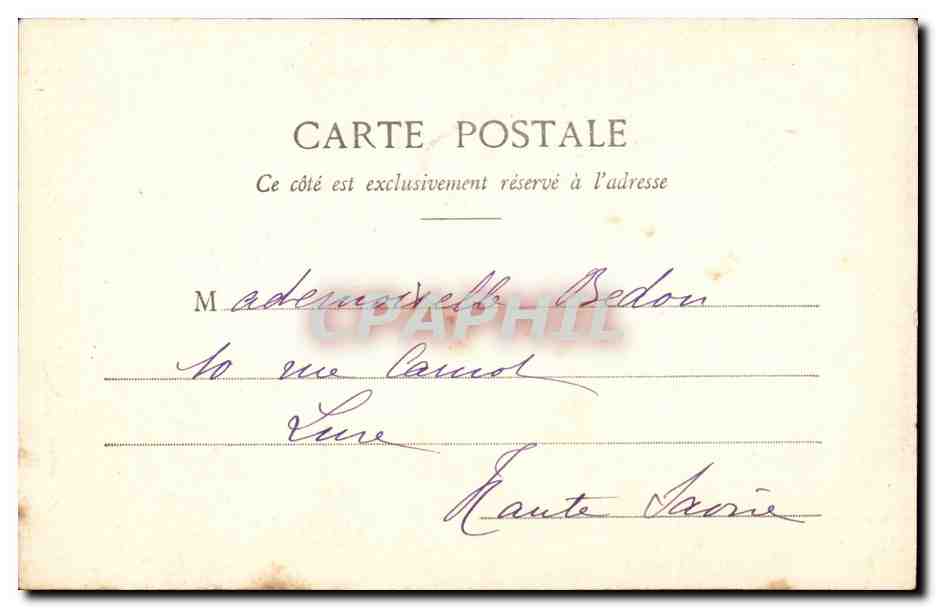 CARTE POSTALE
Ce côté est exclusivement réservé à l'adresse
Mademoiselle Bedon
CPAPHIL
10 rue Carnot
Lure
Haute Savoie